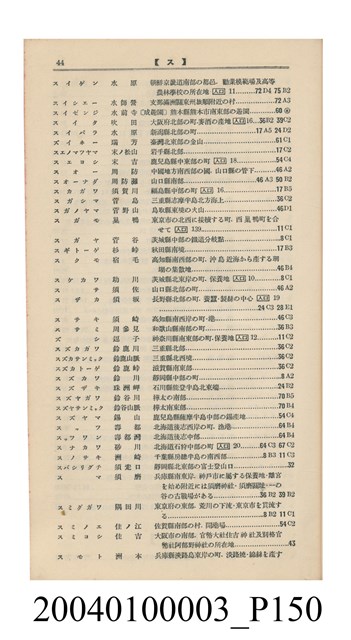 44 【ス】
スイゲン 水原 朝鮮京畿道南部の都邑. 勸業模範場及高等
農林學校の所在地 [人口] 11……72 D4 75 B2
スイシエー 水師營 支那滿洲關東州旅順附近の村……72 A3
スイゼンジ 水前寺 (成趣園) 熊本縣熊本市南東部の遊園……60
スイタ 吹田 大阪府北部の町.
スイバラ 水原 新潟縣北部の町……17 A5 24 D2
ズイホー 瑞芳 臺灣北東部の金山……61 C1
スエノマツヤマ 末ノ松山 岩手縣北部……17 C2
スエヨシ 末吉 鹿兒島縣中東部の町 [人口] 18……54 C4
スオー 周防 中國地方南西部の國. 山口縣の管下……46 A2
スオーナダ 周防灘 山口縣南部……46 A3 50 B2
スカガワ 須賀川 福島縣中部の町 [人口] 16……17 B3
スガシマ 菅島 三重縣志摩半島北方海上……36 C2
スガノヤマ 菅野山 鳥取縣東境の火山……46 D1
スガモ 巢鴨 東京市の北西に接續する町. 西巢鴨町を合
せて [人口] 139……11 C1
スガヤ 菅谷 茨城縣中部の鐵道分岐點……8 C1
スギザワ 杉澤 秋田縣南境……17 B3
スクモ 宿毛 高知縣南西部の町. 沖島近海から産する珊
瑚の集散地……46 B4
スケガワ 助川 茨城縣北東岸の町. 保養地 [人口] 10……8 C1
スサ 須佐 山口縣北部の町……46 A2
スザカ 須坂 長野縣北部の町. 養蠶・製絲の中心 [人口] 19
……24 C3 28 E1
スサキ 須崎 高知縣南部の町・港……46 C3
スサミ 周參見 和歌山縣南部の町……36 B3
ズシ 逗子 神奈川縣南東部の町. 保養地 [人口] 12……11 C2
スズカガワ 鈴鹿川 三重縣北部……36 C2
スズカサンミャク 鈴鹿山脈 三重縣北西境……36 C2
スズカトーゲ 鈴鹿峠 滋賀縣南東部……36 C2
スズカワ 鈴川 靜岡縣中部の町……8 A2
スズザキ 珠洲岬 石川縣能登半島北東端……24 B2
スズヤガワ 鈴谷川 樺太の南部……70 B5
スズヤサンミャク 鈴谷山脈 樺太南東部……70 B5
スズヤマ 錫山 鹿兒島縣薩摩半島中部の錫産地……54 C4
スッツ 壽都 北海道後志西岸の町. 漁港……64 B4
スッツワン 壽都灣 北海道後志中部……64 B4
スナカワ 砂川 北海道石狩中部の町 [人口] 20……64 C3 67 C2
スノサキ 洲崎 千葉縣房總半島の南西部……8 B3 11 C3
スバシリグチ 須走口 靜岡縣北東部の富士登山口……32
スマ 須磨 兵庫縣南東岸. 神戸市に屬する保養地・離宮
を始め附近には須磨神社・須磨關址……の
谷の古戰場がある……36 B2 39 B2
スミダガワ 隅田川 東京府の東部. 荒川の下流・東京市を貫流す
る……8 B2 11 C1
スミノエ 住ノ江 佐賀縣南部の村. 開港場……54 C2
スミヨシ 住吉 大阪市の南部. 官幣大社住吉神社及別格官
幣社阿部野神社の所在地……43
スモト 洲本 兵庫縣淡路島東岸の町. 淡路燒・綿絲を産す
20040100003_P150